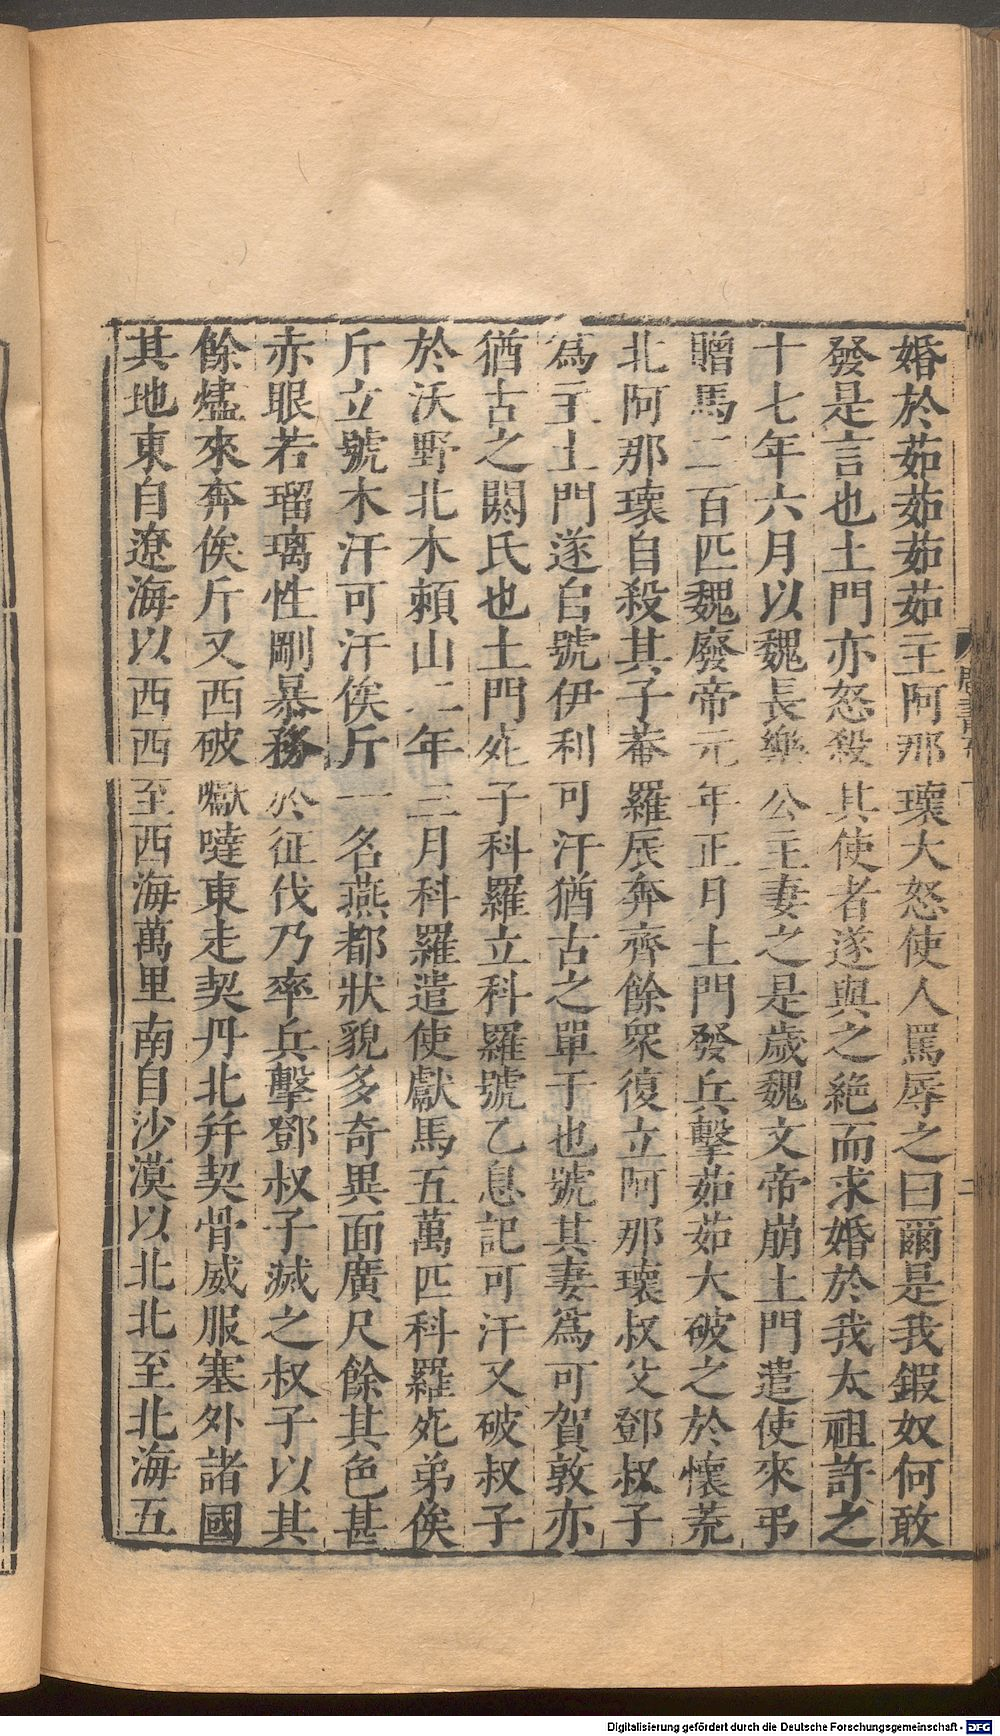 婚於茹茹茹茹主阿那瓌大怒使人罵辱之曰爾是我鍜奴何敢
發是言也土門亦怒殺其使者遂與之絶而求婚於我太祖許之
十七年六月以魏長樂公主妻之是歲魏文帝崩土門遣使來弔
贈馬二百匹魏廢帝元年正月土門發兵擊茹茹大破之於懷荒
北阿那瓌自殺其子菴羅辰奔齊餘衆復立阿那瓌叔父鄧叔子
爲主土門遂自號伊利可汗猶古之單于也號其妻爲可賀敦亦
猶古之閼氏也土門死子科羅立科羅號乙息記可汗又破叔子
於沃野北木賴山二年三月科羅遣使獻馬五萬匹科羅死弟俟
斤立號木汗可汗俟斤一名燕都狀貌多奇異面廣尺餘其色甚
赤眼若瑠璃性剛暴務於征伐乃率兵擊鄧叔子滅之叔子以其
餘燼來奔俟斤又西破嚈噠東走契丹北幷契骨威服塞外諸國
其地東自遼海以西西至西海萬里南自沙漠以北北至北海五
二
Digitalisierung gefördert durch die Deutsche Forschungsgemeinschaft - DFG